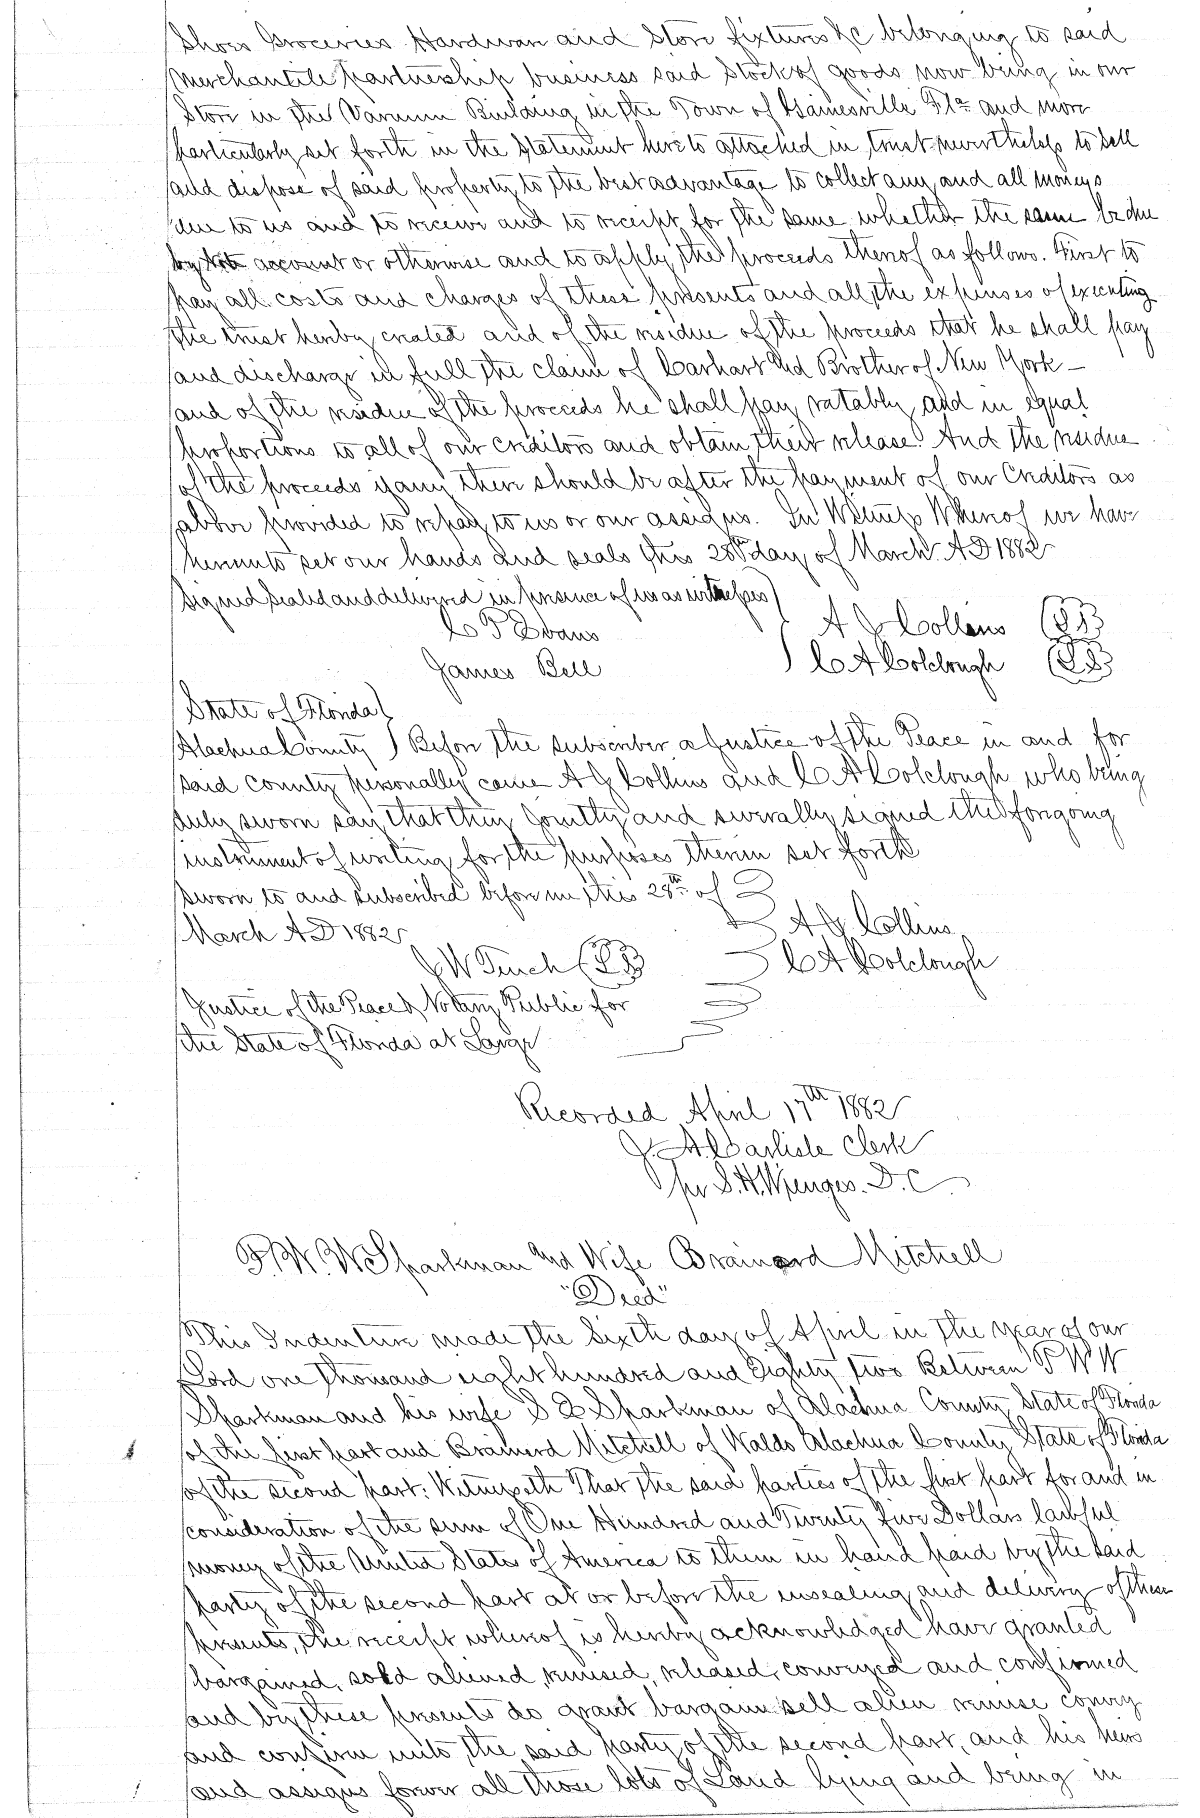 Shoes Groceries Hardware and Store fixtures &c belonging to said
Merchantile partnership business said Stock of goods now being in our
Store in the Varnum Building in the Town of Gainesville Fla and more
particularly set forth in the Statement hereto attached in trust nevertheless to sell
and dispose of said property to the best advantage to collect any and all moneys
due to us and to receive and to receipt for the same whether the same be due
by account or otherwise and to apply the proceeds thereof as follows. First to
pay all costs and charges of these presents and all the expenses of executing
the trust hereby created and of the residue of the proceeds that he shall pay
and discharge in full the claim of Carhart and Brother of New York –
and of the residue of the proceeds he shall pay ratably and in equal
proportions to all of our Creditors and obtain their release. And the residue
of the proceeds if any there should be after the payment of our Creditors as
above provided to repay to us or our assigns. In Witness Whereof we have
hereunto set our hands and seals this 28th day of March AD 1882
Signed Sealed and delivered in presence of us as witnesses)
C P Evans
A J Collins (LS)
James Bell
C A Colclough (LS)
State of Florida}
Alachua County } Before the subscriber a Justice of the Peace in and for
said County personally came A J Collins and C A Colclough who being
duly sworn say that they Jointly and severally signed the foregoing
instrument of writing for the purposes therein set forth
Sworn to and subscribed before me this 28th of
March AD 1882
A J Collins
J W Tench (LS)
C A Colclough
Justice of the Peace & Notary Public for
the State of Florida at Large
Recorded April 17th 1882
J. A. Carlisle Clerk
per S. H. Wienges. D. C.
F. W. W Sparkman and Wife Brainard Mitchell
"Deed"
This Indenture made the Sixth day of April in the year of our
Lord one thousand eight hundred and Eighty two Between F W W
Sparkman and his wife S E Sparkman of Alachua County State of Florida
of the first part and Brainerd Mitchell of Waldo Alachua County State of Florida
of the second part: Witnesseth That the said parties of the first part for and in
consideration of the sum of One Hundred and Twenty five Dollars lawful
money of the United States of America to them in hand paid by the said
party of the second part at or before the ensealing and delivery of these
presents, the receipt whereof is hereby acknowledged have granted
bargained, sold aliened, remised, released, conveyed and confirmed
and by these presents do grant bargain sell alien remise convey
and confirm unto the said party of the second part, and his heirs
and assigns forever all those lots of Land lying and being in